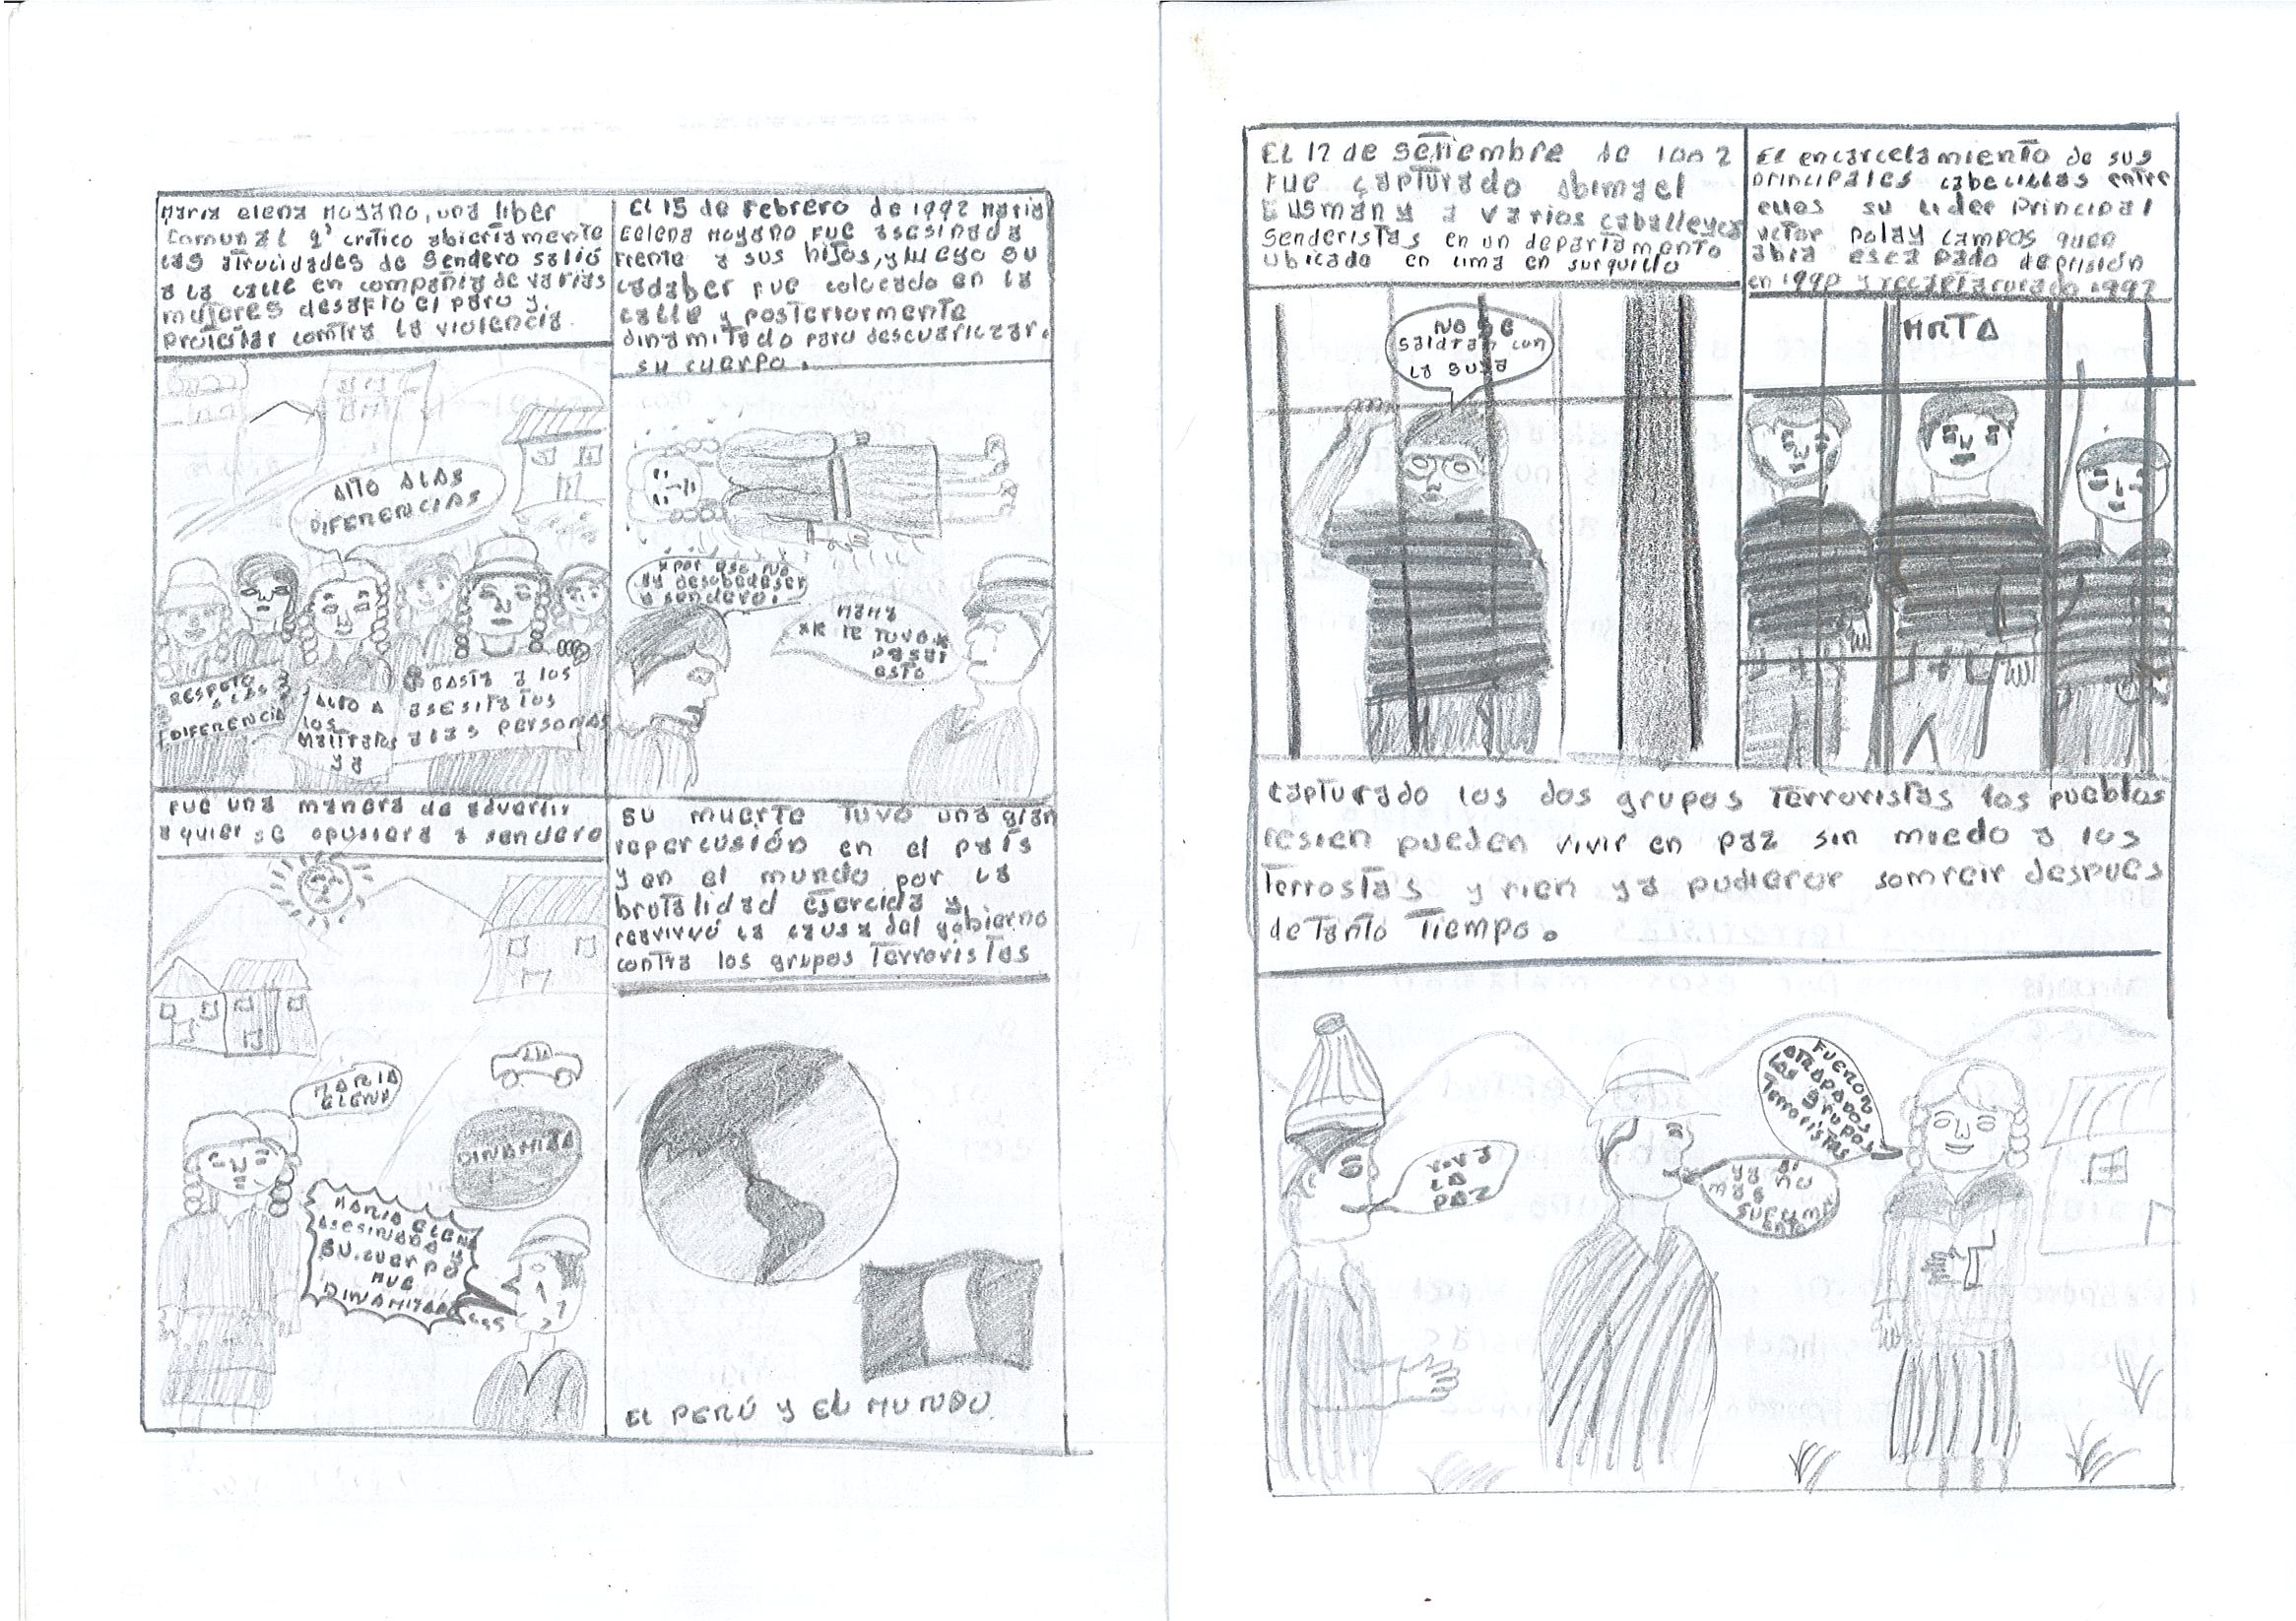 Maria elena Moyano, una liber
Comunal q' critico abiertamente
las atrocidades de Sendero salio
a la calle en compañia de varias
mujeres desafio el paro y
protestar contra la violencia.
ALTO A LAS
DIFERENCIAS
RESPETO
A LAS
DIFERENCIA
ALTO A
los
Maltratos
ya
BASTA a los
asesitatos
alas personas
El 15 de Febrero de 1992 Maria
Eelena Moyano fue asesinada
Frente a sus hijos, y luego su
cadaber fue colocado en la
calle y posteriormente
dinamitado para descuarizar.
su cuerpo.
x por eso no
ay desobedeser
a sendero.
MAMA
xk te tuvo k
pasar
esto
Fue una manera de advertir
a quier se opusiera a sendero
MARIA
ELENA
DINAMITA
MARIA ELENA
asesinada y
su cuerpo
fue
DINAMITADO
su muerte tuvo una gran
repercusión en el país
y en el mundo por la
brutalidad ejercida y
reavivvó la causa del gobierno
contra los grupos terroristas
EL PERÚ Y EL MUNDO
El 12 de setiembre de
fue capturado abimael
Gusmán y a varios caballeyes
Senderistas en un departamento
ubicado en lima en surquillo
NO se
saldran con
la suya
El encarcelamiento de sus
principales cabecillas entre
ellos su lider principal
victor polay campos quen
abia escapado deprision
en 1990 y 1992
MRTA
capturado los dos grupos terroristas los pueblos
resien pueden vivir en paz sin miedo a los
terrostas y rien ya pudieror somreir despues
de tanto tiempo.
VIVA
LA
PAZ
ya si
no
mas
FUERON
ATRAPADOS
los grupos
Terroristas